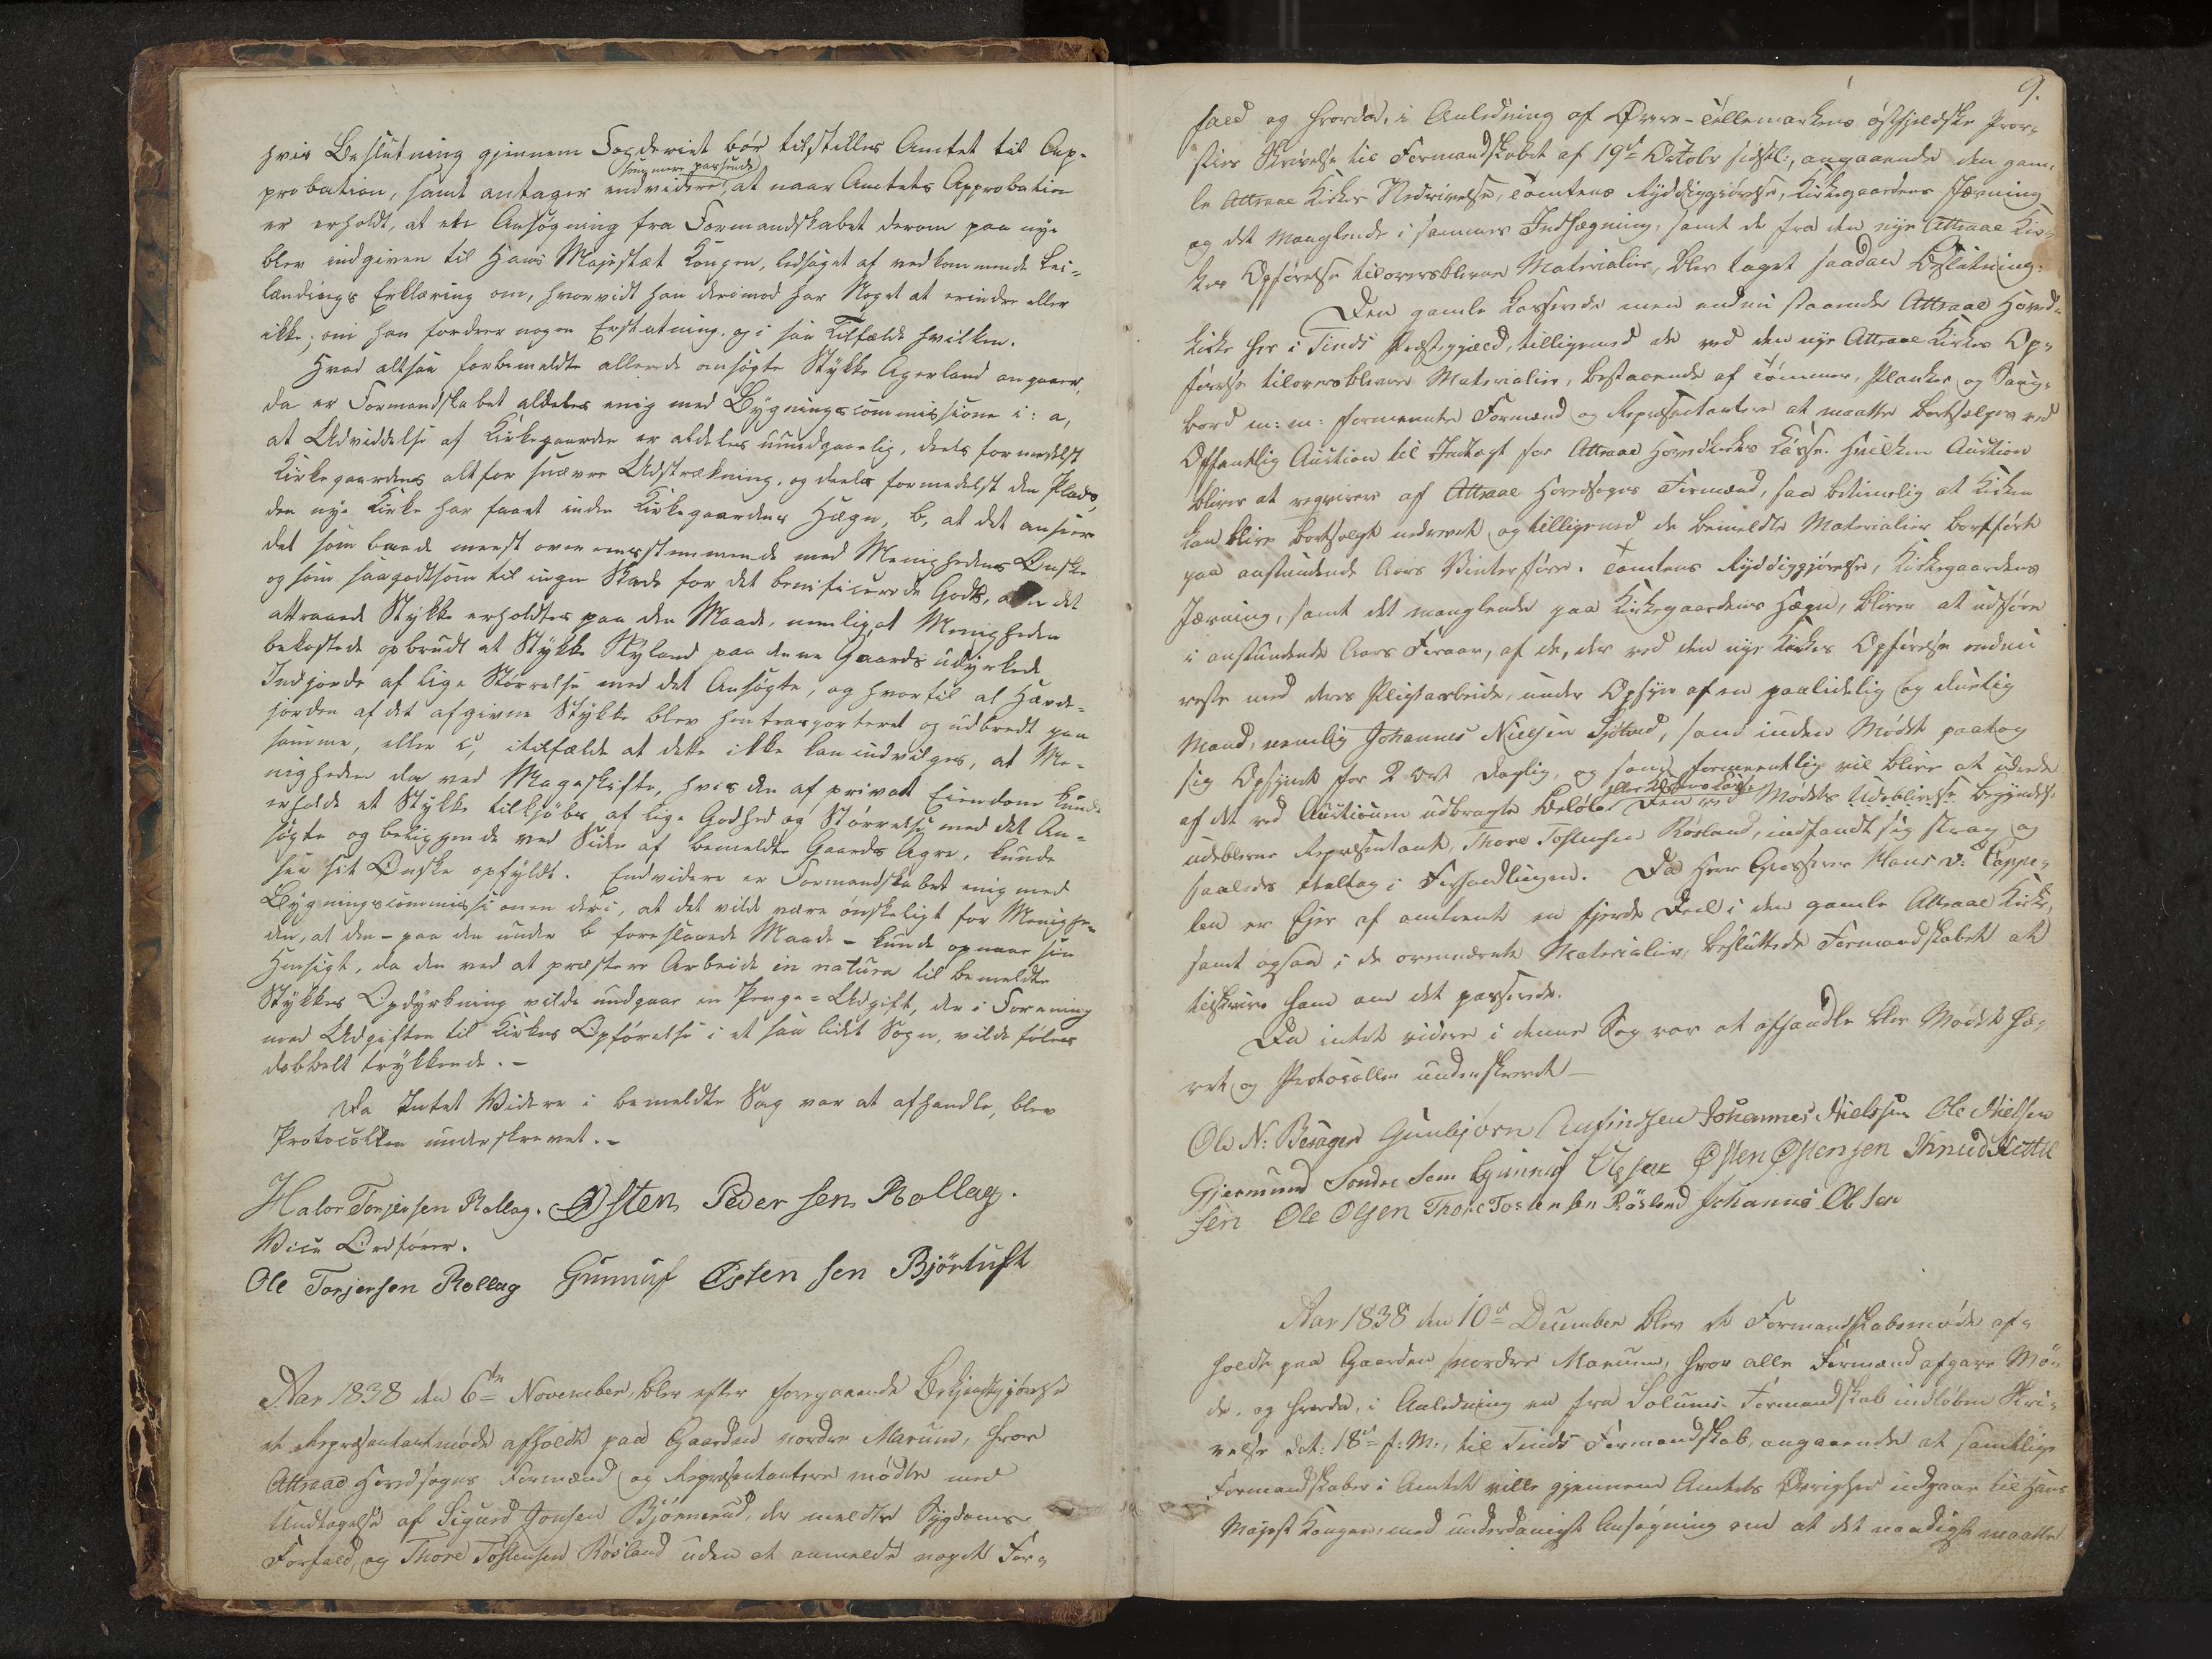 hvis Beslutning gjennem Fogderiet bør tilstilles Amtet til Ap-
som mere passende
probation, samt antager endvidere, at naar Amtets Approbation
er erholdt, at en Ansøgning fra Formandskabet derom paa nye
blev indgiven til Hans Majestæt Kongen, ledsaget af vedkommende Lei-
lændings Erklæring om, hvorvidt han derimod har Noget at erindre eller
ikke; om han fordrer nogen Erstatning, og i saa Tilfælde hvilken.
Hvad altsaa forbemeldte allerede ansøgte Stykke Agerland angaaer,
da er Formandskabet aldeles enig med Bygningscommissionen i: a,
at Udvidelse af Kirkegaarden er aldeles uundgaaelig, deels formedelst
Kirkegaardens altfor snævre Udstrækning, og deels formedelst den Plads,
den nye Kirke har faaet inden Kirkegaardens Hægn, b, at det ansees
det som baade meest overeensstemmende med Menighedens Ønske
og som saagodtsom til ingen Skade for det beneficerede Gods, om det
attraaede Stykke erholdtes paa den Maade, nemlig, at Menigheden
bekostede opbrudt et Stykke Nyland paa denne Gaards udyrkede
Indjorde af lige Størrelse med det Ansøgte, og hvortil al Høvde-
jorden af det afgivne Stykke blev hentransporteret og udbredt paa
samme, eller c, itilfælde at dette ikke kan indvilges, at Me-
nigheden da ved Mageskifte, hvis den af privat Eiendom kunde
erholde et Stykke tilkjøbs af lige Godhed og Størrelse med det An-
søgte og beliggende ved Siden af bemeldte Gaards Agre, kunde
see sit Ønske opfyldt. Endvidere er Formandskabet enig med
Bygningscommissionen deri, at det vilde være ønskeligt for Menighe-
den, at den - paa den under b foreslaaede Maade - kunde opnaae sin
Hensigt, da den ved at præstere Arbeide in natura til bemeldte
Stykkes Opdyrkning vilde undgaae en Penge-Udgift, der i Forening
med Udgiften til Kirkens Opførelse i et saa lidet Sogn, vilde føles
dobbelt trykkende. -
Da Intet Videre i bemeldte Sag var at afhandle, blev
Protocollen underskrevet. -
Halvor Torjersen Rollag. Østen Pedersen Rollag.
Vice Ordfører.
Ole Torjersen Rollag Gunnuf Østensen Björtuft
Aar 1838 den 6te November, blev efter foregaaende Bekjendtgjørelse
et Repræsentantmøde afholdt paa Gaarden nordre Marum, hvor
Attraae Hovedsogns Formænd og Repræsentantere mødte med
Undtagelse af Sigurd Jonsen Bjørnerud, der meldte Sygdoms
Forfald, og Thore Tostensen Rösland uden at anmelde noget For-
9.
fald og hvorda, i Anledning af Øvre-Tellemarkens østfjeldske Prov-
sties Skrivelse til Formandskabet af 19de Octobr sidstl:, angaaende den gam-
le Attraae Kirkes Nedrivelse, Tomtens Ryddiggjørelse, Kirkegaardens Jævning
og det Manglende i sammes Indhægning, samt de fra den nye Attraae Kir-
kes Opførelse tiloversblevne Materialier, blev taget saadan Beslutning:
Den gamle kasserede men endnu staaende Attraae Hoved-
kirke her i Tinds Præstegjæld, tilligemed de ved den nye Attraae Kirkes Op-
førelse tiloversblevne Materialier, bestaaende af Tømmer, Planker og Saug-
bord m: m: formeente Formænd og Repræsentantere at maatte bortsælges ved
Offentlig Auction til Indtægt for Attraae Hovedkirkes Casse. Hvilken Auction
bliver at reqvirere af Attraae Hovedsogns Formænd, saa betimelig at Kirken
kan blive bortsolgt nedrevet og tilligemed de bemeldte Materialier bortført
paa anstundende Aars Vinterføre. Tomtens Ryddiggjørelse, Kirkegaardens
Jævning, samt det manglende paa Kirkegaardens Hægn, bliver at udføre
i anstundende Aars Foraar, af de, der ved den nye Kirkes Opførelse endnu
reste med deres Pligtarbeide, under Opsyn af en paalidelig og duelig
Mand, nemlig Johannes Nielsen Sjøtved, som inden Mødet paatog
sig Opsynet for 2 Ort daglig, og som formeentlig vil blive at udrede
af det ved Auctionen udbragte Beløb. Den ved Mødets Begyndelse
udeblevne Repræsentant, Thore Tostensen Rösland, indfandt sig strax og
saaledes deeltog i Forhandlingen. Da Herr Grosserer Klaus D: Cappe-
len er Ejer af omtrent en fjerde Deel i den gamle Attraae Kirke,
samt ogsaa i de ovennævnte Materialier, besluttede Formandskabet at
tilskrive ham om det passerede.
Da intet videre i denne Sag var at afhandle blev Mødet hæ-
vet og Protocollen underskrevet -
Ole N: Bersager Gunbjørn Johannes Nielssen Ole Nielsen
Gjermund Sondresem Gunnuf Olsen Østen Østensen Knud Kittil
sen Ole Olsen Thore Tostensen Rösland Johannes Olsen
Aar 1838 den 10de December blev et Formandskabsmøde af-
holdt paa Gaarden nordre Marum, hvor alle Formænd afgave Mø-
de, og hvorda, i Anledning en fra Solums Formandskab indløben Skri-
velse dat: 18de f: M:, til Tinds Formandskab, angaaende at samtlige
Formandskaber i Amtet ville gjennem Amtets Øvrighed indgaae til Hans
Majest Kongen, med underdanigst Ansøgning om at det naadigst maatte